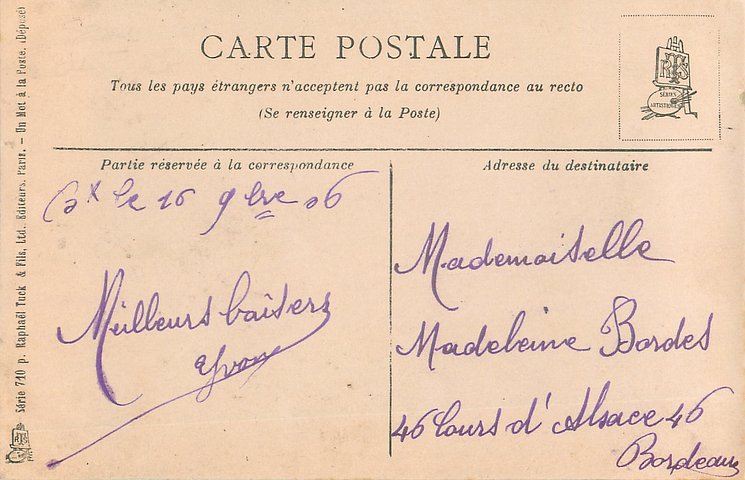 CARTE POSTALE
Tous les pays étrangers n'acceptent pas la correspondance au recto
(Se renseigner à la Poste)
RTS
SÉRIES
ARTISTIQUES
Partie réservée à la correspondance
Bx le 16 9bre 06
Meilleurs baisers
Yvonne
Adresse du destinataire
Mademoiselle
Madeleine Bordes
46 Cours d'Alsace 46
Bordeaux
Série 710 p. Raphaël Tuck & Fils, Ltd. Editeurs, Paris. — Un Mot à la Poste. (Déposé)